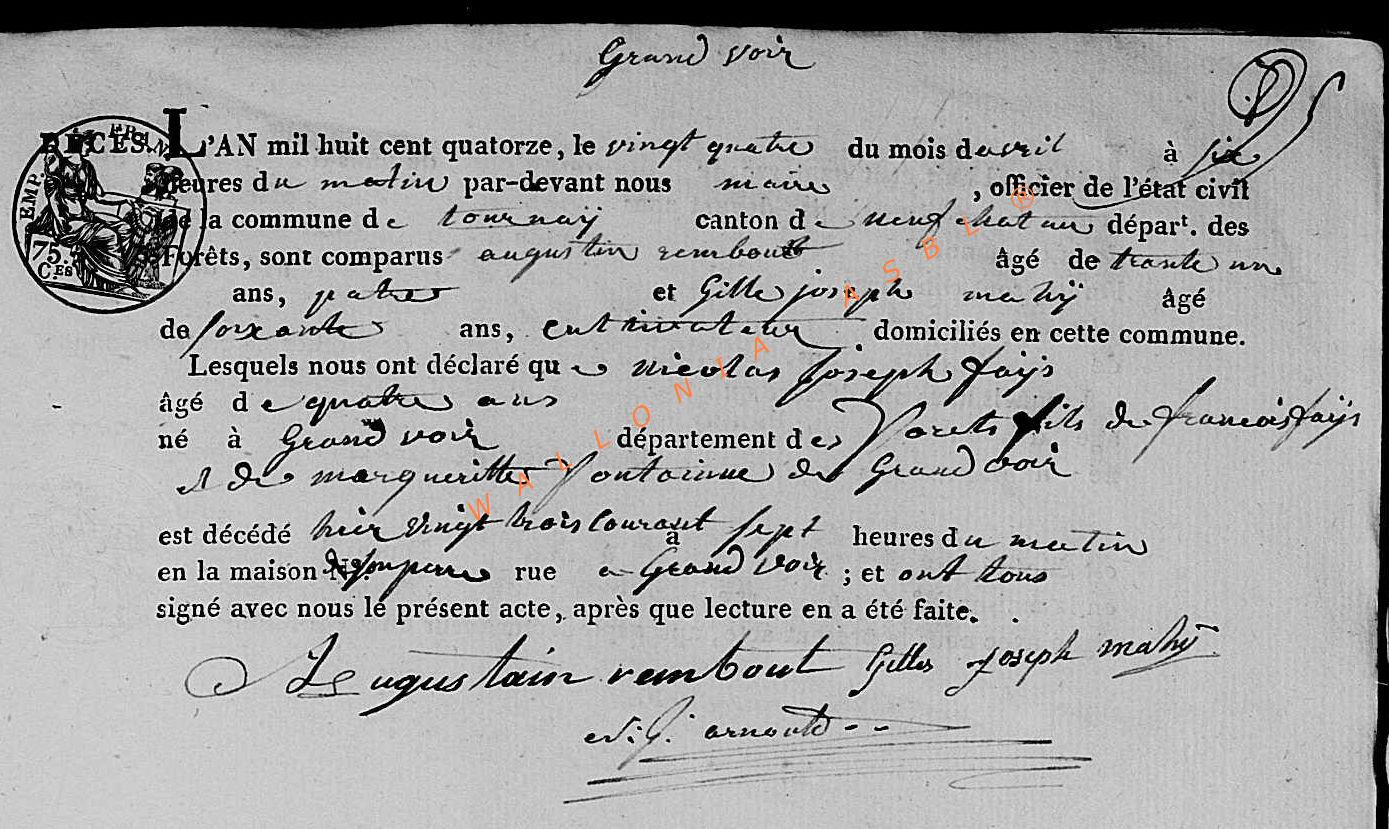 Grand voir
DÉCÈS. L'AN mil huit cent quatorze, le vingt quatre du mois davril à six
heures du matin par-devant nous maire, officier de l'état civil
de la commune de tournaÿ canton de neufchateau départ. des
Forêts, sont comparus augustin rembout âgé de trente un
ans, patre et Gille joseph mahÿ âgé
de soixante ans, cultivateur domiciliés en cette commune.
Lesquels nous ont déclaré que nicolas Joseph faÿs
âgé de quatre ans
né à Grand voir département des Forets fils de francois faÿs
et de margueritte fontainne de Grand voir
est décédé hier vingt trois Courant à sept heures du matin
en la maison N°. de son perre rue a Grand voir ; et ont tous
signé avec nous le présent acte, après que lecture en a été faite.
Augustain rembout Gilles Joseph mahÿ
arnould
EMP. FRAN.
75.
C.ES
WALLONIA ASBL ®